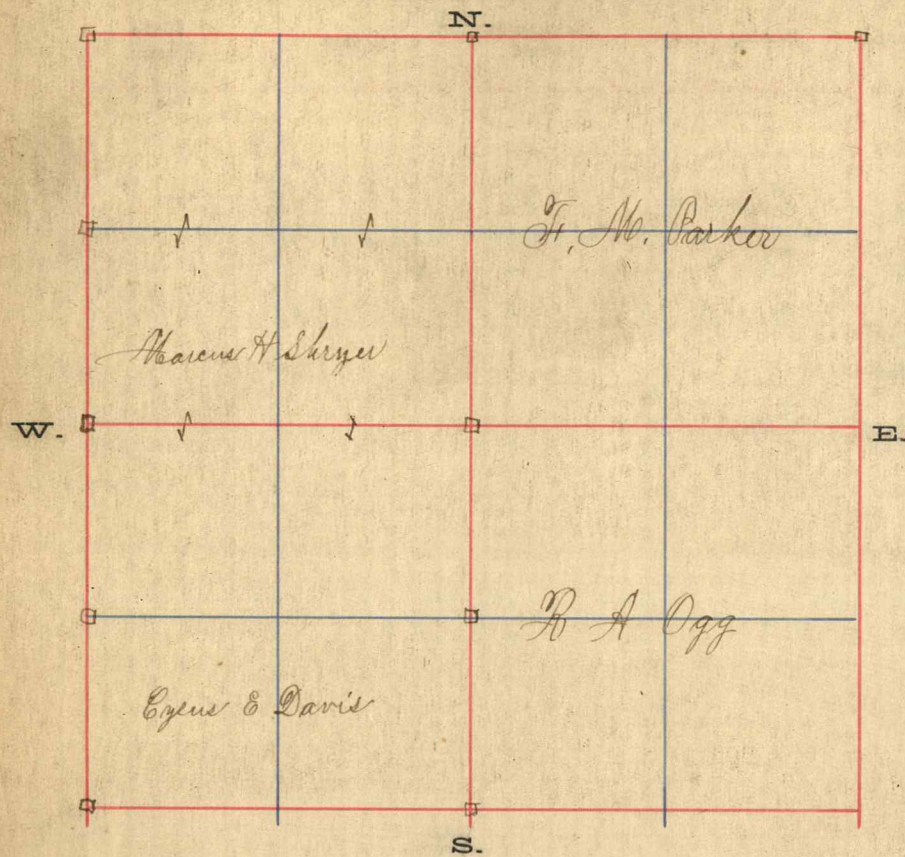 N.
F. M. Parker
Marcus H Shryer
W.
E.
R A Ogg
Cyrus E Davis
S.